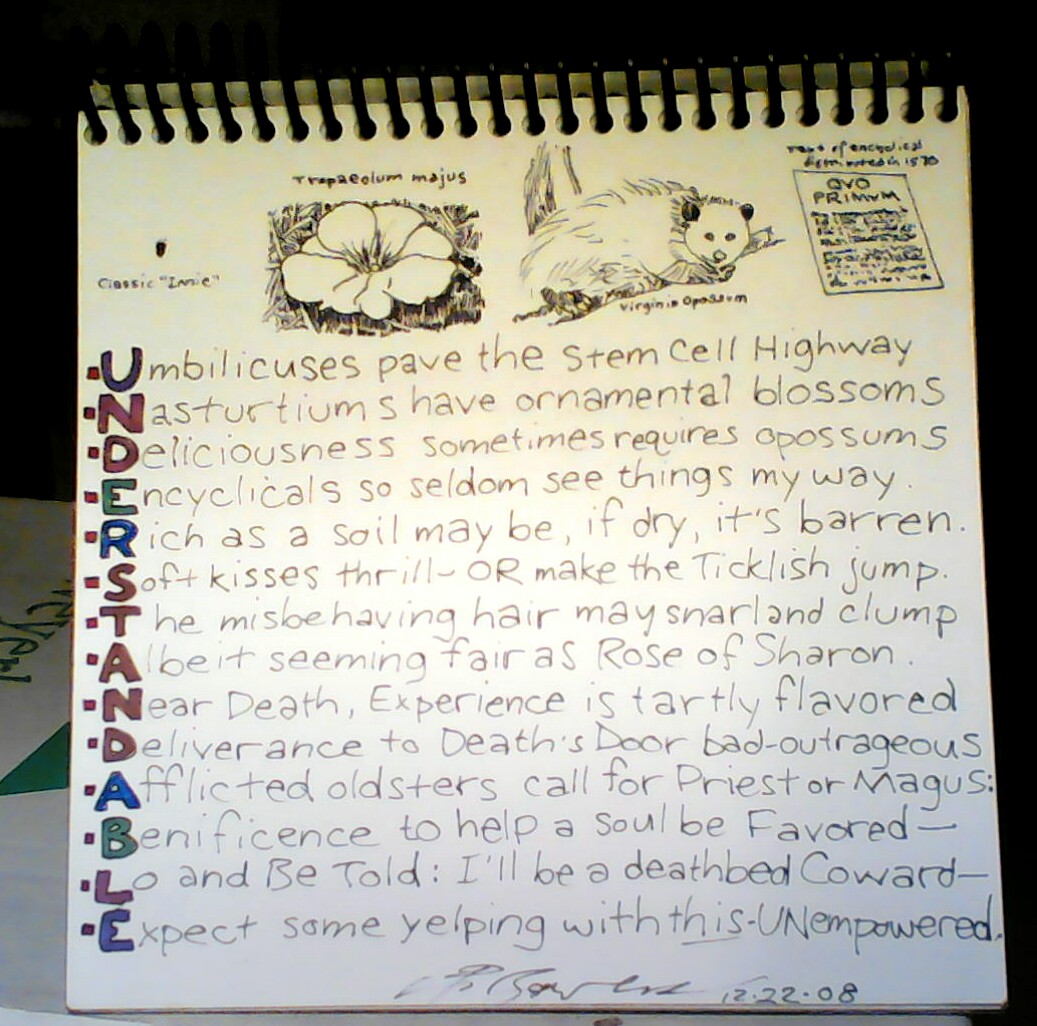 Text of encyclical
distributed in 1570
QVO
PRIMVM
Tropaeolum majus
Classic "Innie"
Virginia Opossum
Umbilicuses pave the Stem Cell Highway
Nasturtiums have ornamental blossoms
Deliciousness sometimes requires opossums
Encyclicals so seldom see things my way.
Rich as a soil may be, if dry, it's barren.
Soft kisses thrill—OR make the Ticklish jump.
The misbehaving hair may snarl and clump
Albeit seeming fair as Rose of Sharon.
Near Death, Experience is tartly flavored
Deliverance to Death's Door bad-outrageous
Afflicted oldsters call for Priest or Magus:
Benificence to help a soul be Favored—
Lo and Be Told: I'll be a deathbed Coward—
Expect some yelping with this-UNempowered.
12.22.08